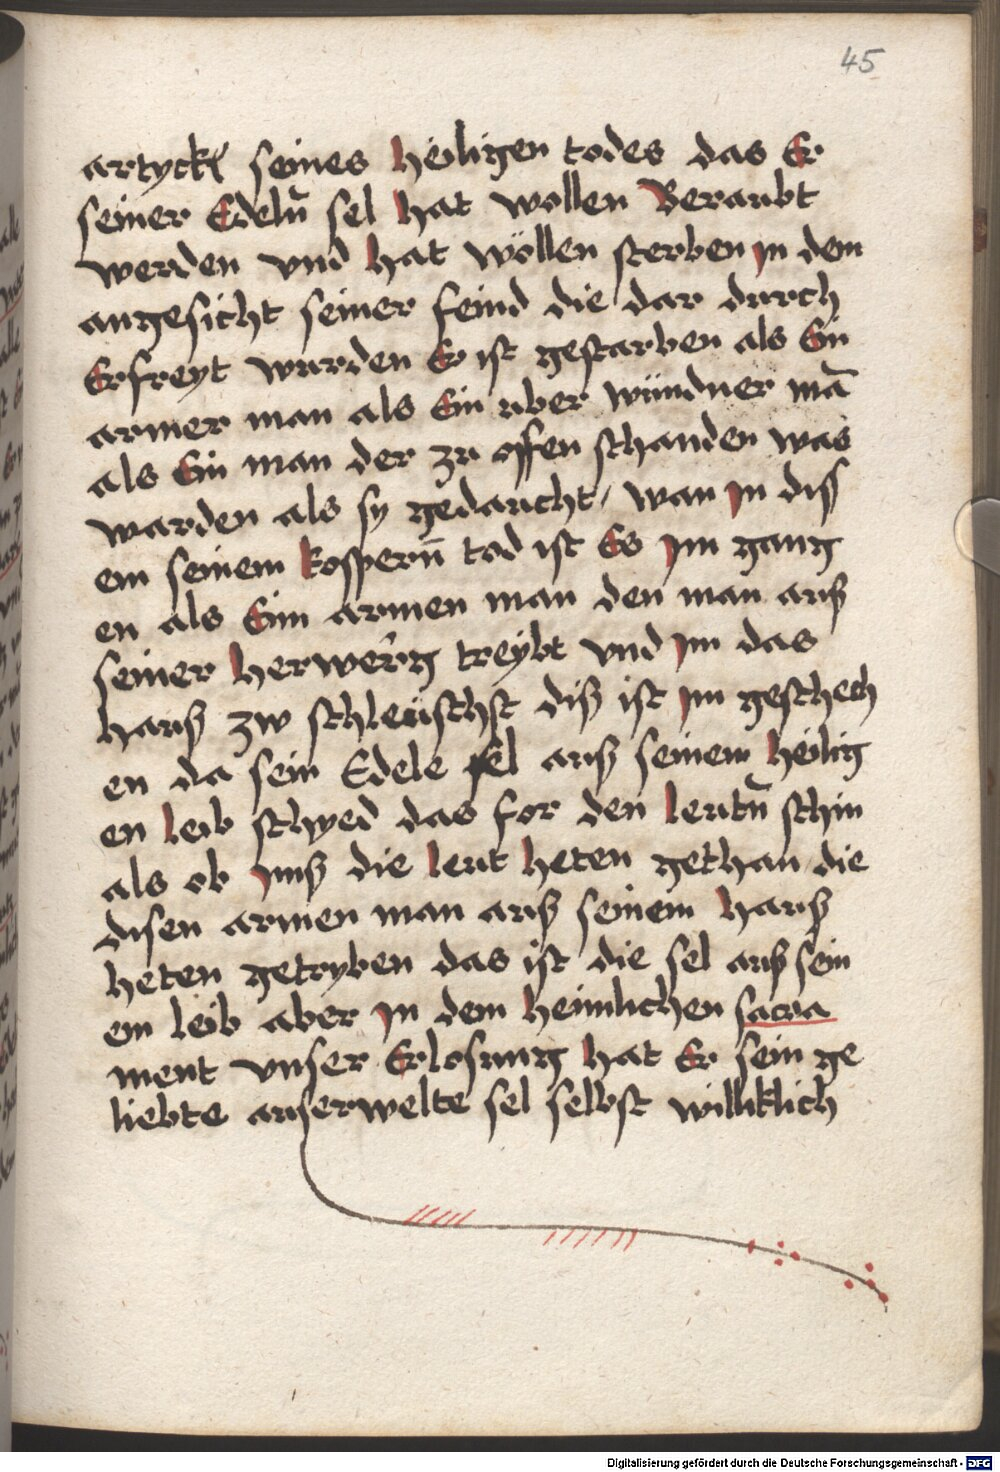 45
artyckel seines heiligen todes das Er
seiner Edeln̄ sel hat wollen Beraubt
werden vnd hat wöllen sterben jn dem
angesicht seiner feind die dar durch
Erfreyt wurden Er ist gestarben als Ein
armer man als Ein uber wündner mā
als Ein man der zu offen schanden was
warden als sy gedaucht / wan jn diss
em seinem kospern̄ tod ist Es jm gang
en als Eim armen man den man auß
seiner herwerg treybt vnd jm das
hauß zw schleüschst diß ist jm geschech
en da sein Edele sel auß seinem heilig
en leib schyed das for den leutn̄ schin
als ob jmß die leut heten gethan die
disen armen man auß seinem hauß
heten getryben das ist die sel auß sein
em leib aber jn dem heimlichen sacra
ment vnser Erlosung hat Er sein ge
liebte auserwelte sel selbst williklich
Digitalisierung gefördert durch die Deutsche Forschungsgemeinschaft - DFG